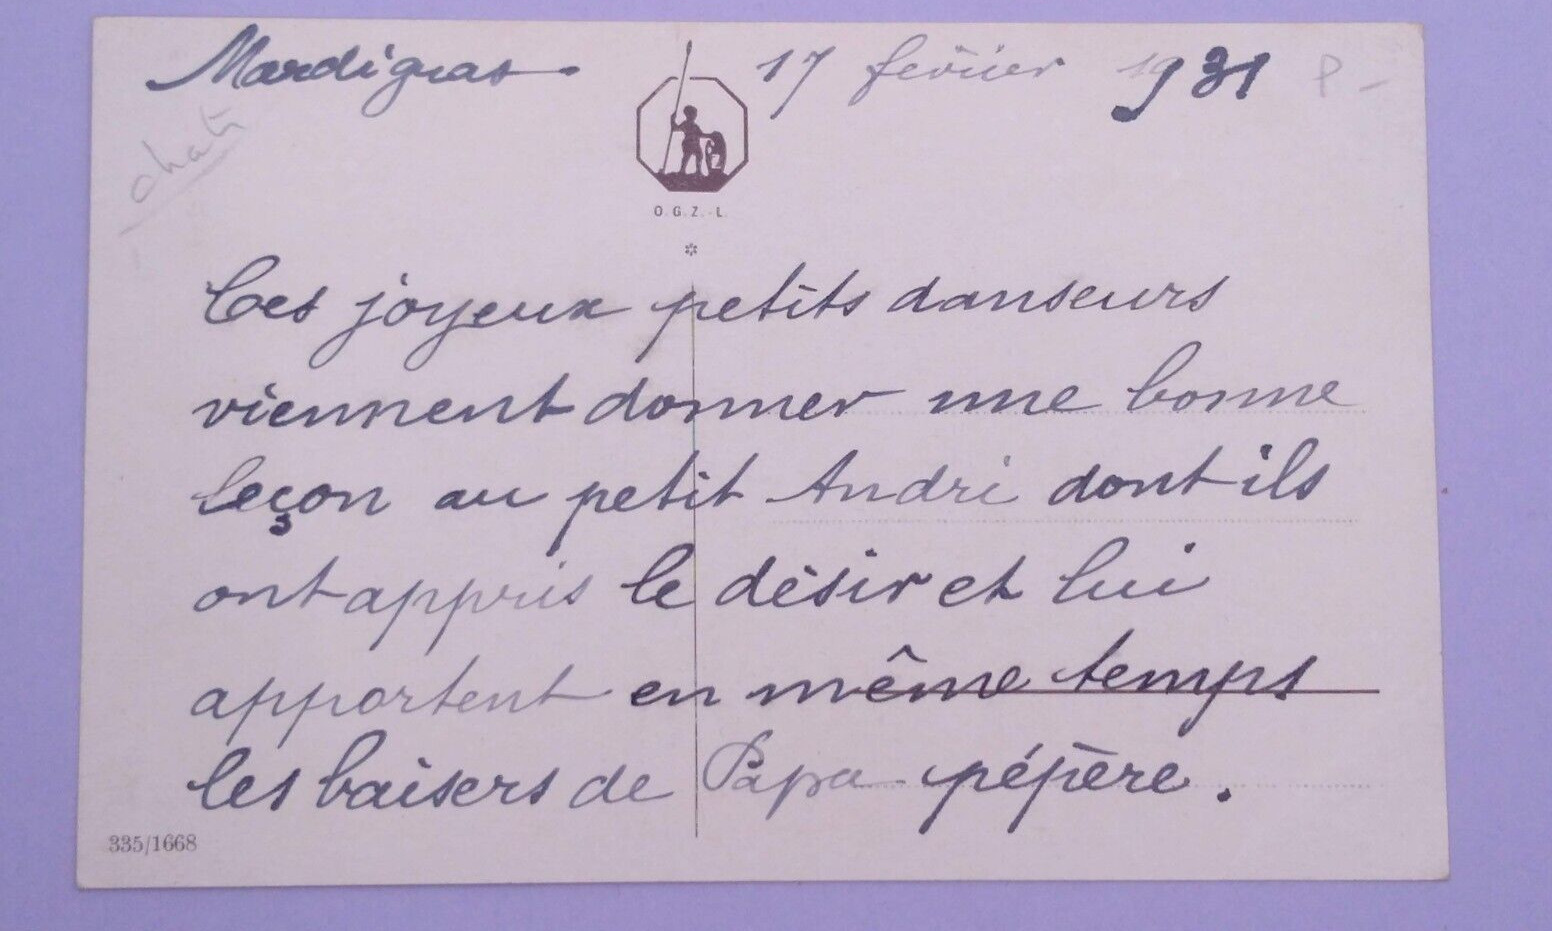 Mardigras. 17 février 1931 P-
chats
O.G.Z.-L.
Ces joyeux petits danseurs
viennent donner une bonne
leçon au petit André dont ils
ont appris le désir et lui
apportent en même temps
les baisers de Papa pépère.
335/1668